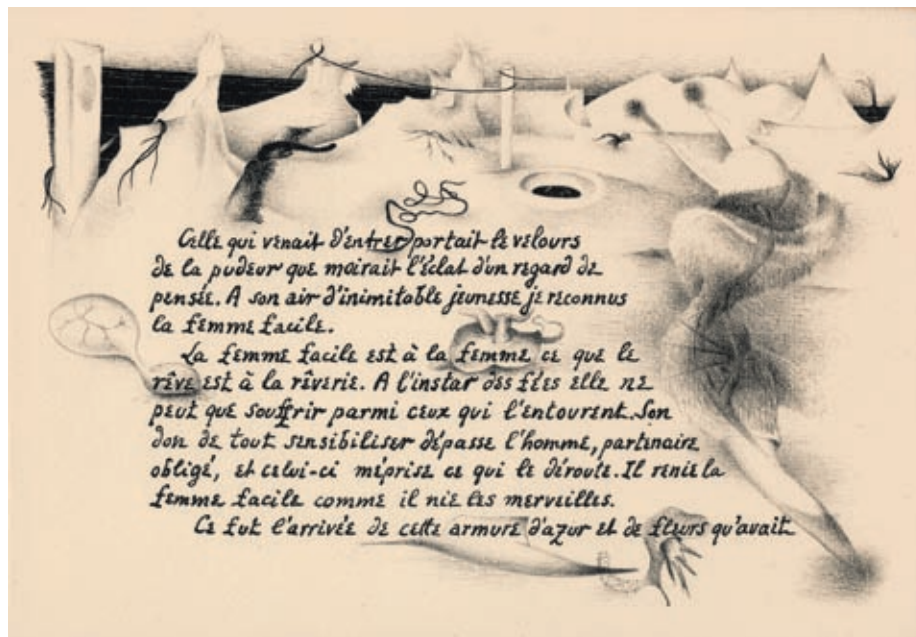 Celle qui venait d'entrer portait le velours
de la pudeur que moirait l'éclat d'un regard de
pensée. A son air d'inimitable jeunesse je reconnus
la femme facile.
La femme facile est à la femme ce que le
rêve est à la rêverie. A l'instar des fées elle ne
peut que souffrir parmi ceux qui l'entourent. Son
don de tout sensibiliser dépasse l'homme, partenaire
obligé, et celui-ci méprise ce qui le déroute. Il renie la
femme facile comme il nie les merveilles.
Ce fut l'arrivée de cette armure d'azur et de fleurs qu'avait